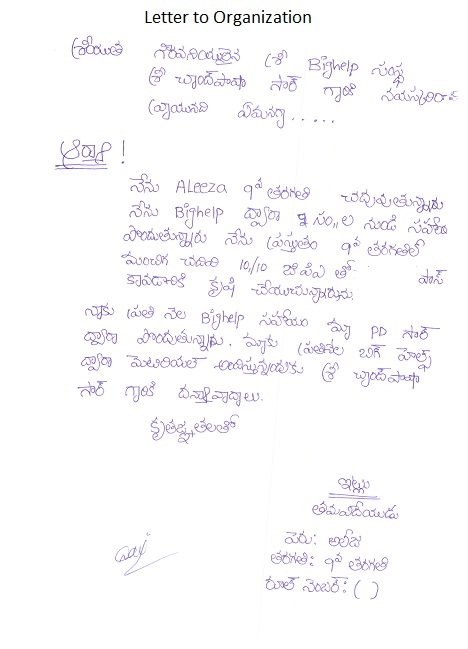 Letter to Organization
శ్రీయుత గౌరవనీయులైన శ్రీ Bighelp సంస్థ
శ్రీ చ్యాంద్‌పాషా సార్ గ్యారికి నమస్కరించి
వ్రాయునది ఏమనగ్యా.....
ఆర్యా!
నేను ALeeza 9వ తరగతి చదువుతున్నాను
నేను Bighelp ద్వారా 9 సం,,ల నుండి సహాయం
పొందుతున్నాను నేను ప్రస్తుతం 9వ తరగతిలో
మంచిగ చదివి 10/10 జిపిఏ తో పాస్
కావడానికి కృషి చేయుచున్నాను.
నాకు ప్రతి నెల Bighelp సహాయం మ్యా PD సార్
ద్వారా పొందుతున్నాను. మ్యాకు ప్రతినెల బిగ్ హెల్ప్
ద్వారా మెటిరియల్ అందిస్తున్నందుకు శ్రీ చ్యాంద్‌పాషా
సార్ గ్యారికి ధన్యావాదాలు.
కృతజ్ఞతలతో
ఇట్లు
తమవిదేయుడు
పెరు: అలీజ
తరగతి: 9వ తరగతి
రూల్ నెంబర్: ( )